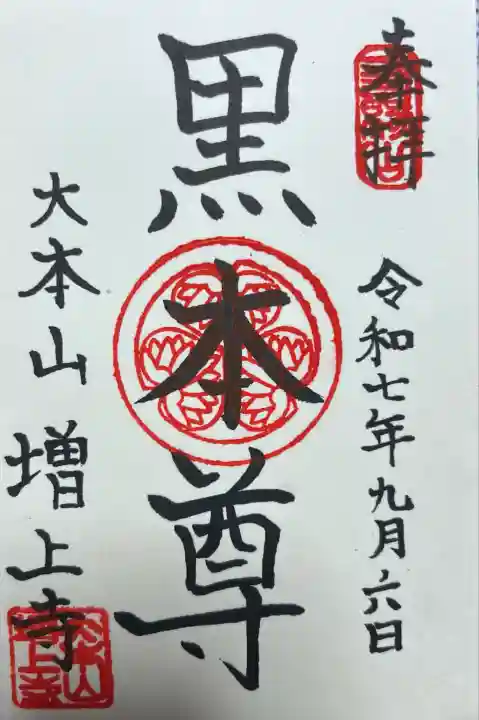 奉拝
令和七年九月六日
黒本尊
大本山 増上寺